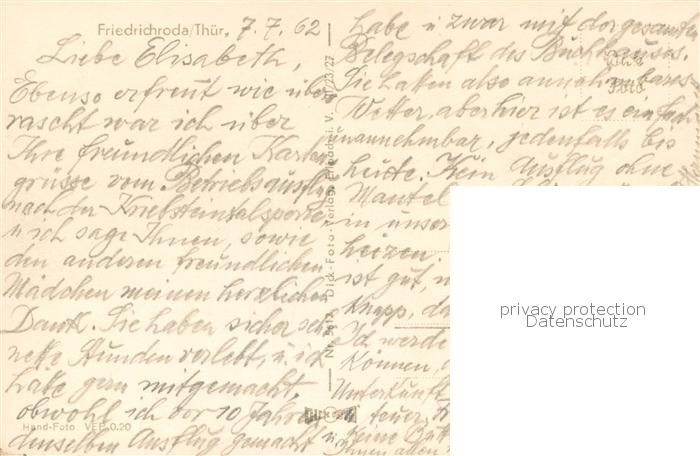 Friedrichroda/Thür. 7.7.62
Liebe Elisabeth,
Ebenso erfreut wie über
rascht war ich über
Ihre freundlichen Karten
grüsse vom Betriebsausflug
nach der Kriebsteintalsperre
u ich sage Ihnen, sowie
den anderen freundlichen
Mädchen meinen herzlichen
Dank. Sie haben sicher sehr
nette Stunden verlebt, u. ich
hätte gern mitgemacht,
obwohl ich vor 10 Jahren
denselben Ausflug gemacht
Hand-Foto VEP 0.20
Nr. 5612 Dick-Foto-Verlag, Erlbach i. V.
habe u zwar mit der gesamten
Belegschaft des Buchhauses.
Sie hatten also annehmbares
Wetter, aber hier ist es einfach
unannehmbar, jedenfalls bis
heute. Kein Ausflug ohne
Mantel
in unser
heizen.
ist gut, u
knapp, da
Ich werde
können,
Unterkunft
teuer,
keine
Ihnen allen
Echt
Foto
privacy protection
Datenschutz